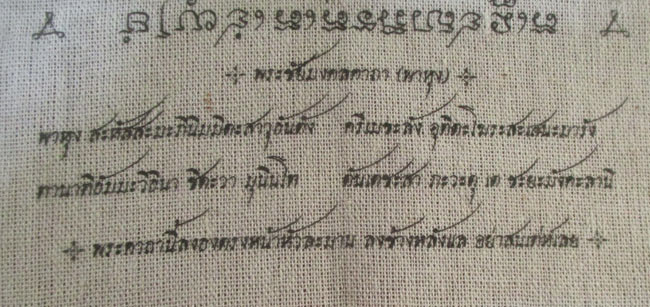 พระชัยมงคลคาถา (พาหุง)
พาหุง สะหัสสะมะภินิมมิตะสาวุธันตัง ครีเมขะลัง อุทิตะโฆระสะเสนะมารัง
ทานาทิธัมมะวิธินา ชิตะวา มุนินโท ตันเตชะสา ภะวะตุ เต ชะยะมังคะลานิ
พระคาถานี้ลงองครงหน้าหัวละมาน ลงข้างหลังแล อย่าสนเท่ห์เลย